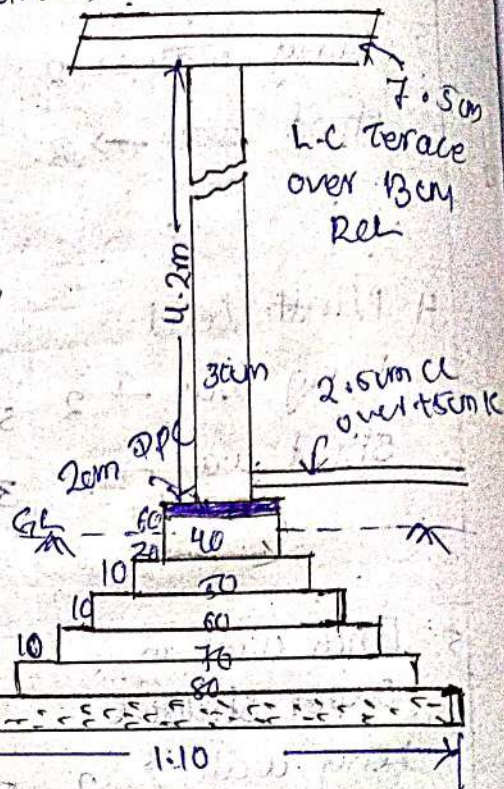 7.5cm
L.C Terace
over 13cm
4.2m
30cm
2.5cm CC
over
DPC
2cm
GL
60
20
40
10
50
10
60
10
70
80
1:10